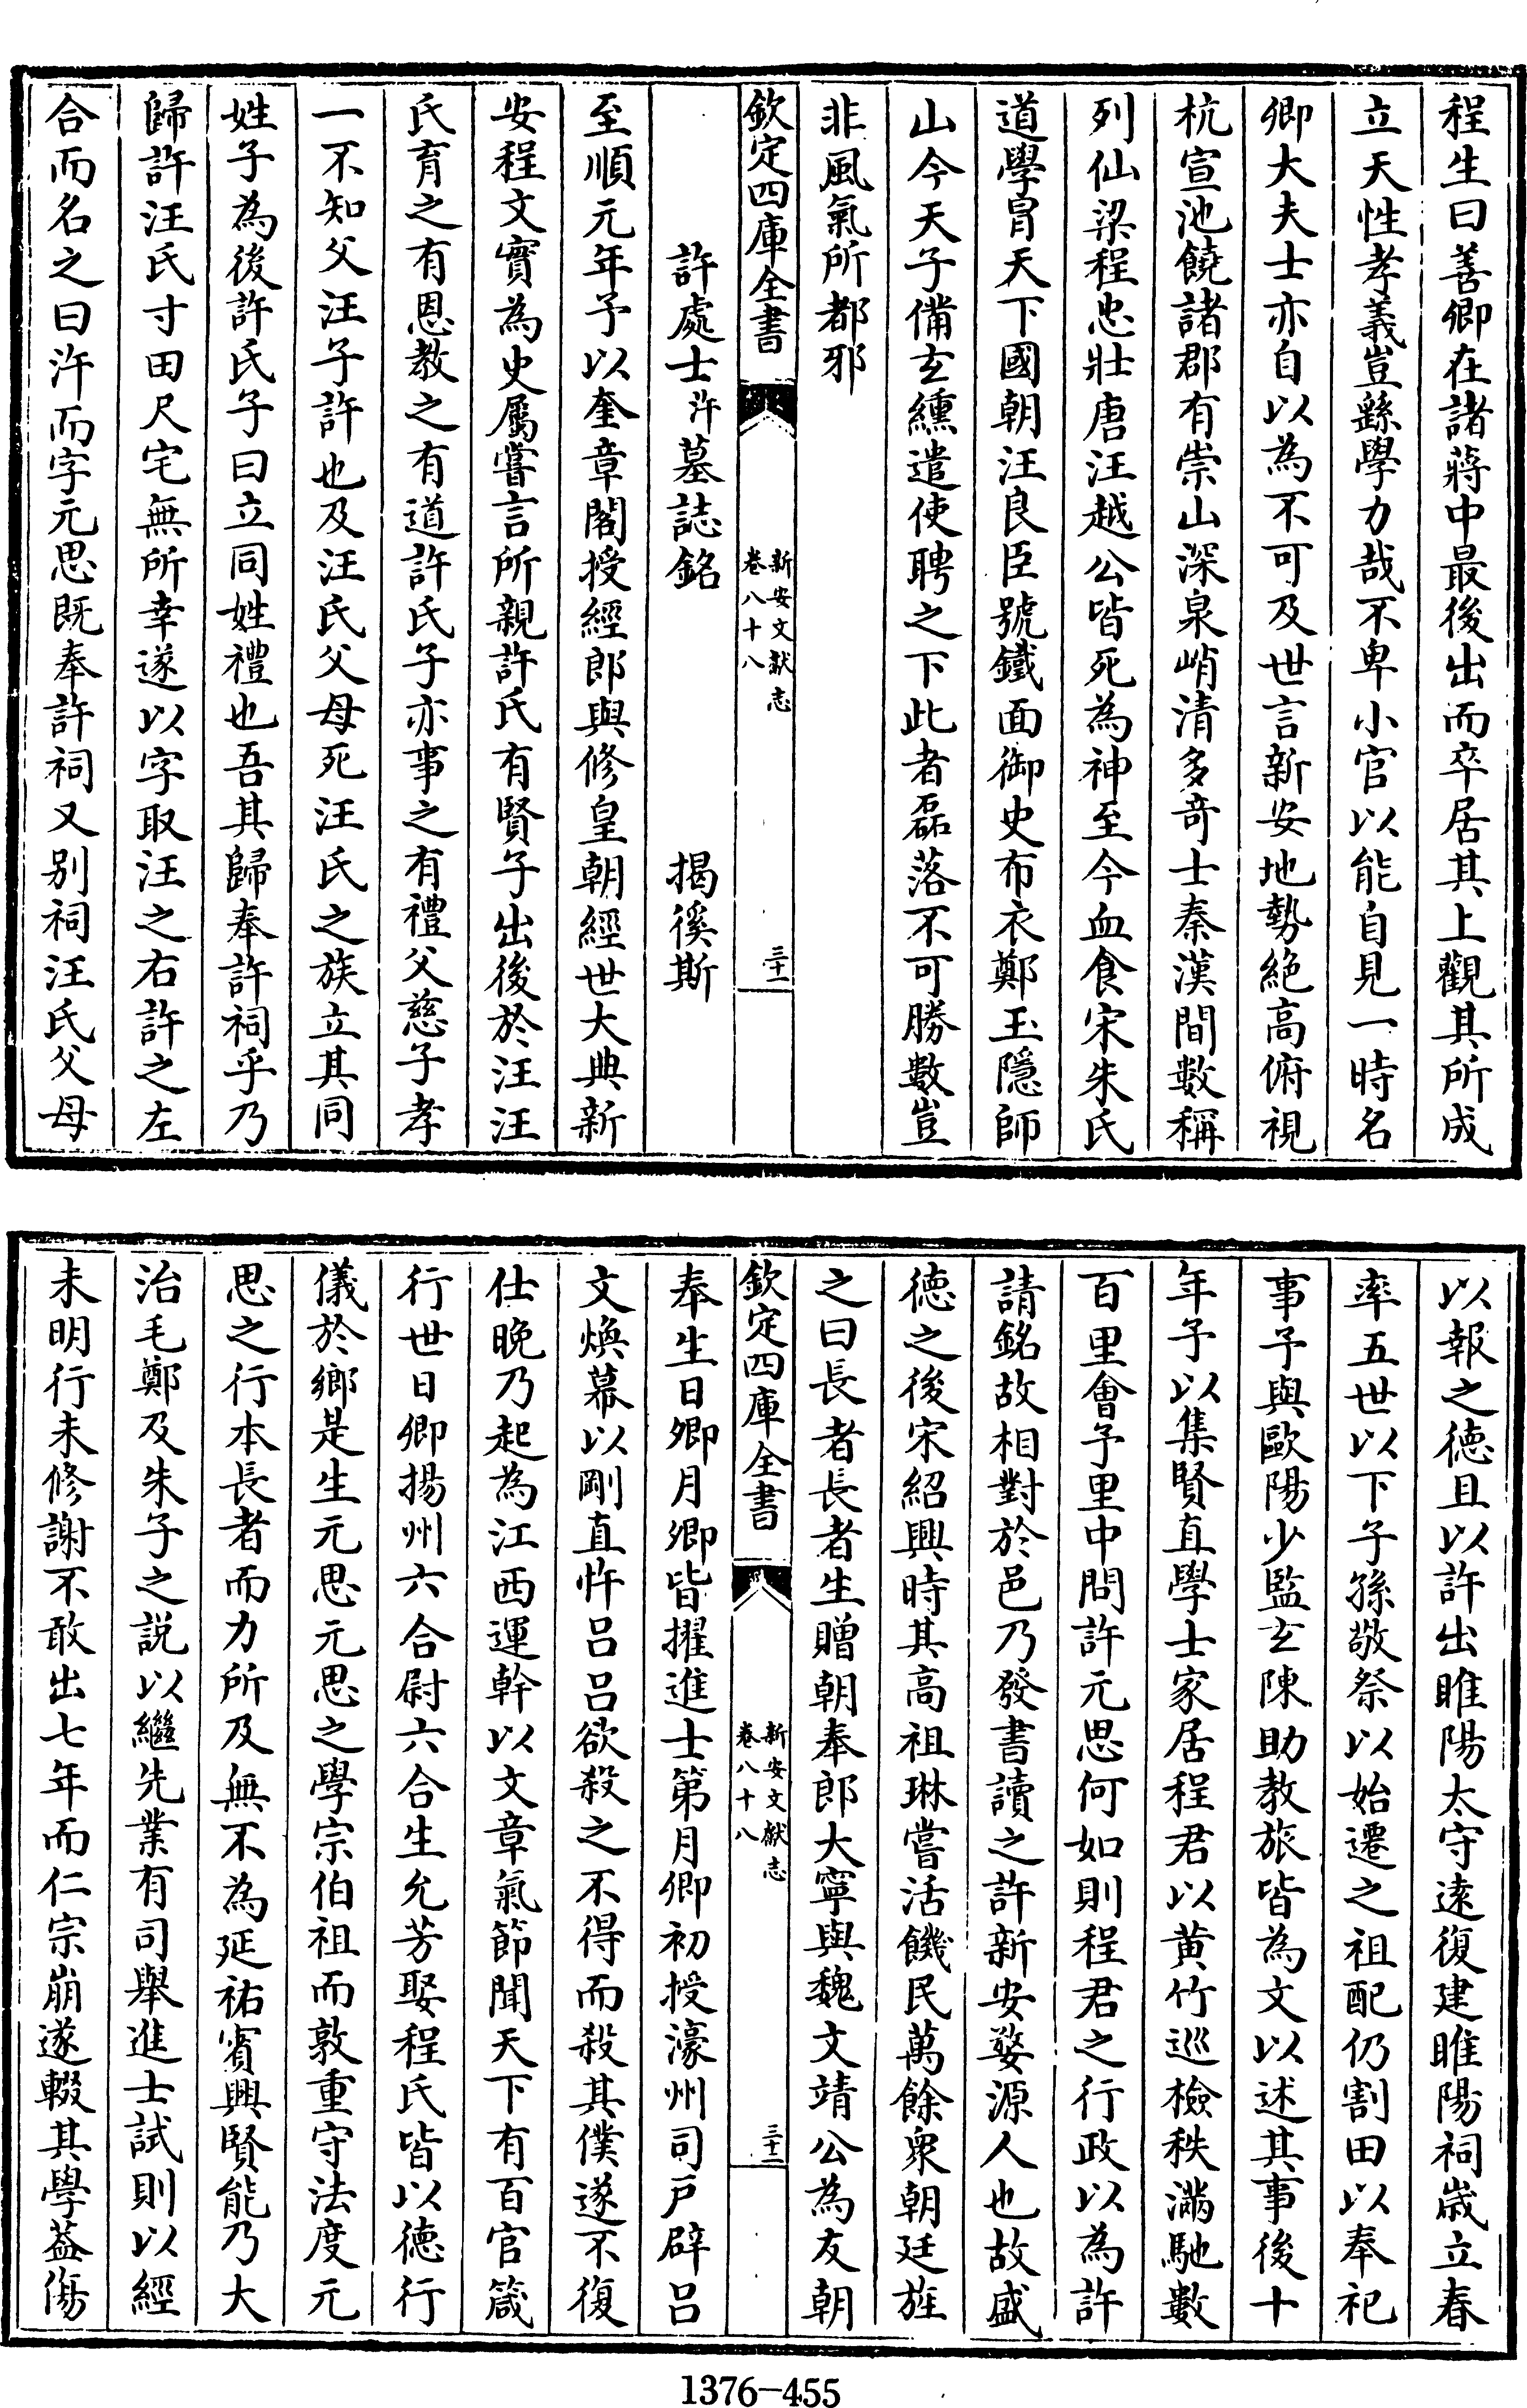 程生曰善卿在諸蔣中最後出而卒居其上觀其所成
立天性孝義豈繇學力哉不卑小官以能自見一時名
卿大夫士亦自以為不可及世言新安地勢絶高俯視
杭宣池饒諸郡有崇山深泉峭清多奇士秦漢間數稱
列仙梁程忠壯唐汪越公皆死為神至今血食宋朱氏
道學冐天下國朝汪良臣號鐵面御史布衣鄭玉隱師
山今天子備玄纁遣使聘之下此者磊落不可勝數豈
非風氣所都邪
欽定四庫全書
新安文獻志
卷八十八
三十一
許處士汻墓誌銘 揭徯斯
至順元年予以奎章閣授經郎與修皇朝經世大典新
安程文實為史屬嘗言所親許氏有賢子出後於汪汪
氏育之有恩教之有道許氏子亦事之有禮父慈子孝
一不知父汪子許也及汪氏父母死汪氏之族立其同
姓子為後許氏子曰立同姓禮也吾其歸奉許祠乎乃
歸許汪氏寸田尺宅無所幸遂以字取汪之右許之左
合而名之曰汻而字元思既奉許祠又别祠汪氏父母
以報之徳且以許出睢陽太守逺復建睢陽祠嵗立春
率五世以下子孫敬祭以始遷之祖配仍割田以奉祀
事予與歐陽少監玄陳助教旅皆為文以述其事後十
年予以集賢直學士家居程君以黄竹巡檢秩滿馳數
百里會予里中問許元思何如則程君之行政以為許
請銘故相對於邑乃發書讀之許新安婺源人也故盛
德之後宋紹興時其高祖琳嘗活饑民萬餘衆朝廷旌
之曰長者長者生贈朝奉郎大寧與魏文靖公為友朝
欽定四庫全書
新安文獻志
卷八十八
三十二
奉生日卿月卿皆擢進士第月卿初授濠州司戸辟吕
文煥幕以剛直忤吕吕欲殺之不得而殺其僕遂不復
仕晚乃起為江西運幹以文章氣節聞天下有百官箴
行世日卿揚州六合尉六合生允芳娶程氏皆以德行
儀於鄉是生元思元思之學宗伯祖而敦重守法度元
思之行本長者而力所及無不為延祐賓興賢能乃大
治毛鄭及朱子之説以繼先業有司舉進士試則以經
未明行未修謝不敢出七年而仁宗崩遂輟其學葢傷
1376—455